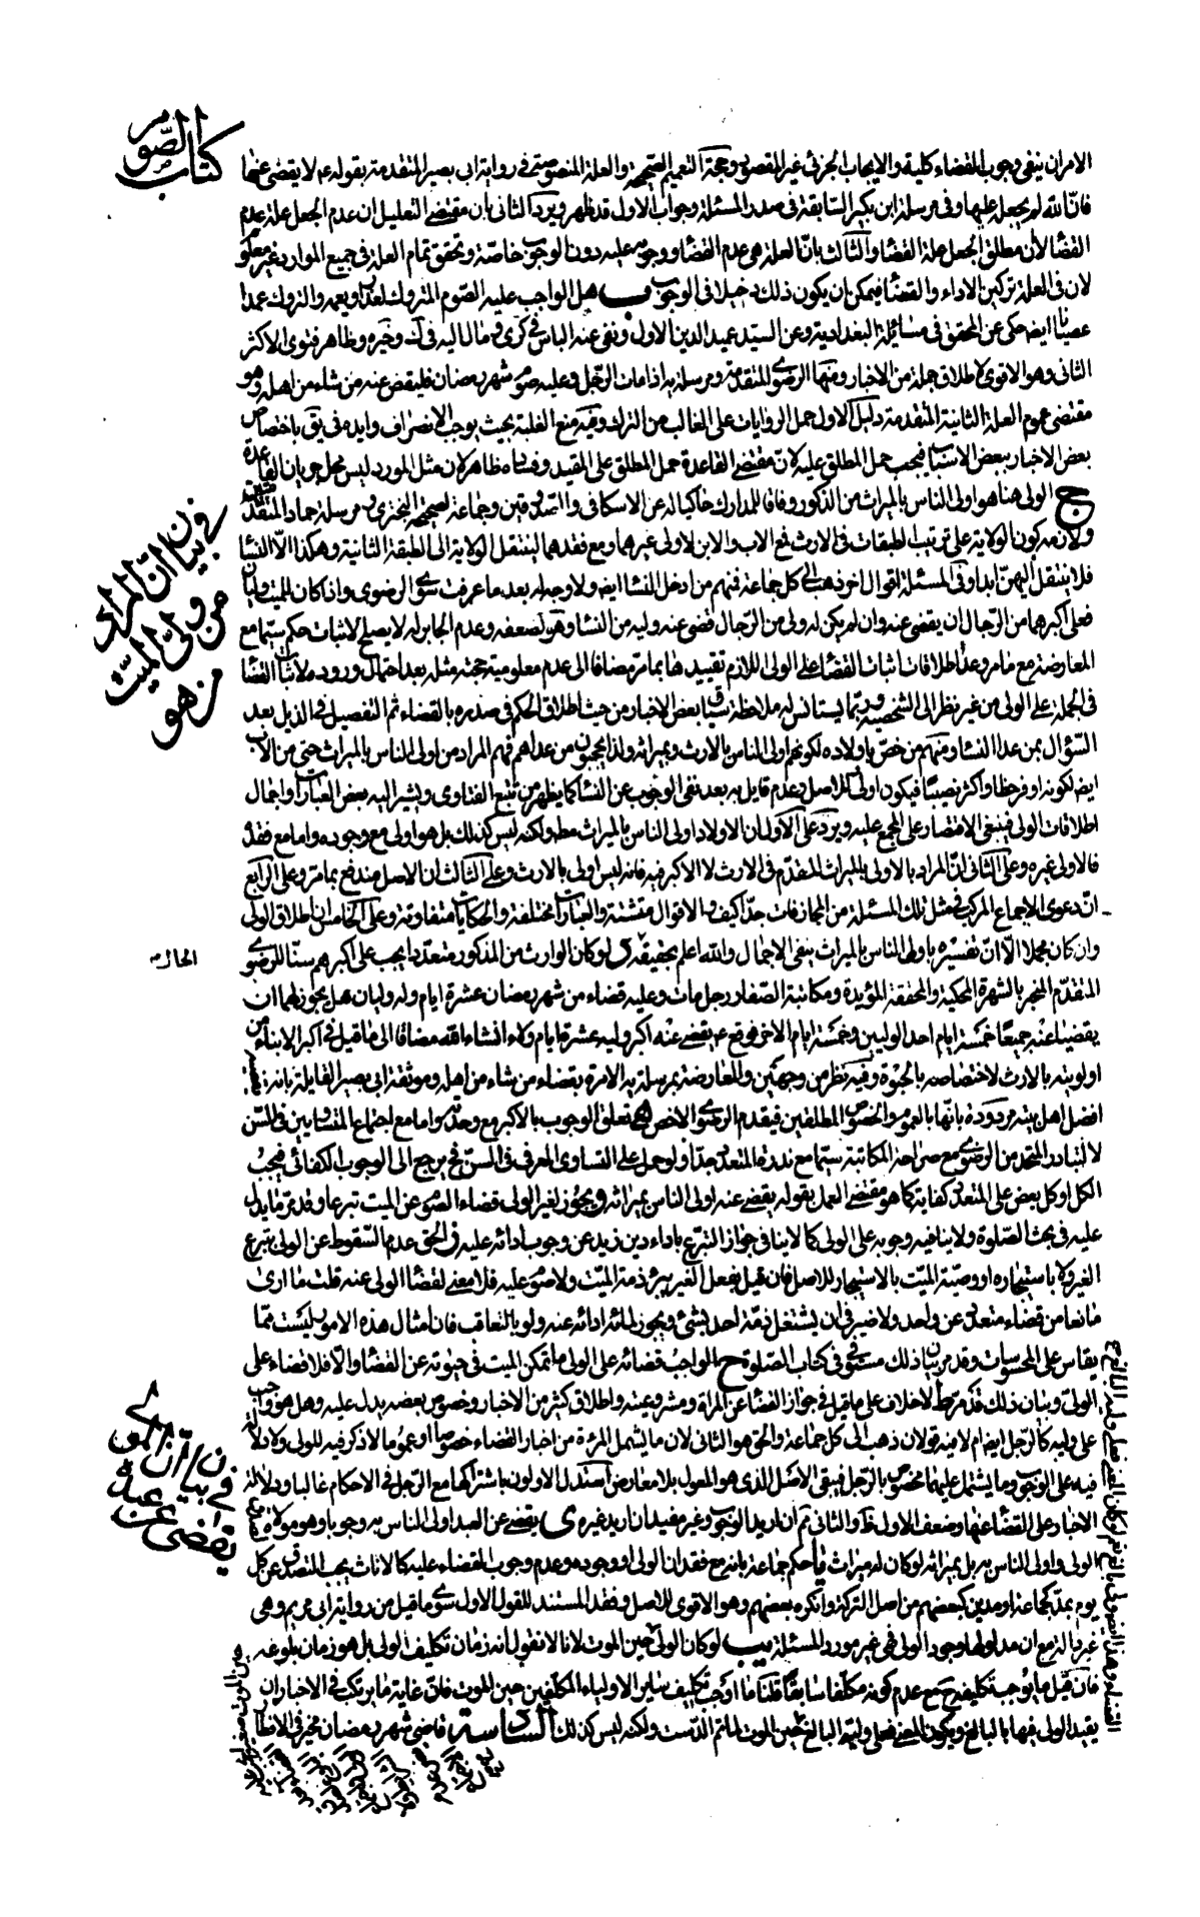 كتاب الصوم
الامران ينفى وجوب القضاء كلية والايجاب الجزئى غير المقصود وحجة التعميم الصحيحة والعلة المنصوصة فى رواية ابى بصير المتقدمة بقوله ع لا يقضى عنها
فان الله لم يجعله عليها وفى مرسلة ابن بكير السابقة فى صدر المسئلة وجواب الاول قد ظهر ويرد الثانى بان مقتضى التعليل ان عدم الجعل علة عدم
القضاء لا ان مطلق الجعل علة القضاء والثالث بان العلة هى عدم القضاء ووجوبه عليه دون الوجوب خاصة وتحقق تمام العلة فى جميع الموارد غير معلوم
لان فى العلة تركبن الاداء والقضاء فيمكن ان يكون ذلك دخيلا فى الوجوب ب هل الواجب عليه الصوم المتروك لعذر او يعمه والتروك عمدا
عصيانا ايضا حكى عن المحقق فى مسائله البغدادية وعن السيد عميد الدين الاول ونفى عنه الباس فى كرى ومال اليه فى ك وخيره وظاهر فتوى الاكثر
الثانى وهو الاقوى لاطلاق جملة من الاخبار ومنها الرضوى المتقدمة ومرسلة يه اذا مات الرجل وعليه صوم شهر رمضان فليقض عنه من شاء من اهله وهو
مقتضى عموم العلة الثانية المتقدمة دليل الاول حمل الروايات على الغالب من الترك وفيه منع الغلبة بحيث يوجب الانصراف وايده فى يق باختصاص
بعض الاخبار ببعض الاسباب فيجب حمل المطلق عليه لان مقتضى القاعدة حمل المطلق على المقيد وفساده ظاهر لان مثل المورد ليس محل جريان القاعدة
ج الولى هنا هو اولى الناس بالميراث من الذكور وفاقا للمدارك حاكيا له عن الاسكافى والصدوقين وجماعة لصحيحة البخترى ومرسلة حماد المتقدمتين
ولازمه كون الولاية على ترتيب الطبقات فى الارث فمع الاب والابن لا ولى غيرهما ومع فقدهما ينتقل الولاية الى الطبقة الثانية وهكذا الا النساء
فلا ينتقل اليهن ابدا وفى المسئلة اقوال اخر ذهب الى كل جماعة فمنهم من ادخل النساء ايضا ولا وجه له بعد ما عرفت سوى الرضوى واذا كان للميت وليان
فعلى اكبرهما من الرجال ان يقضى عنه وان لم يكن له ولى من الرجال قضى عنه وليه من النساء وهو لضعفه وعدم الجابر له لا يصلح لاثبات حكم سيما مع
المعارضة مع ما مر وعدا اطلاقات اثبات القضاء على الولى اللازم تقييدها بما مر مضافا الى عدم معلومية حجية مثله بعد احتمال ورودها لاثبات القضاء
فى الجملة على الولى من غير نظر الى الشخصية وربما يستانس له ملاحظة سياق بعض الاخبار من حيث اطلاق الحكم فى صدره بالقضاء ثم التفصيل فى الذيل بعد
السؤال بمن عدا النساء ومنهم من خص باولاده لكونهم اولى الناس بالارث وبميراثه ولذا يحجبون من عداهم فهم المراد من اولى الناس بالميراث حتى من الاب
ايضا لكونه اوفر حظا واكثر نصيبا فيكون اولى وللاصل وعدم قايل به بعد نفى الوجوب عن النساء كما يظهر من تتبع الفتاوى ويشير اليه بعض العبارات واجمال
اطلاقات الولى فينبغى الاقتصار على المجمع عليه ويرد على الاول ان الاولاد اولى الناس بالميراث مط ولكنه ليس كذلك بل هو اولى مع وجوده واما مع فقده
فالاولى غيره وعلى الثانى ان المراد بالاولى بالميراث المتقدم فى الارث لا الاكبر فيه فانه ليس اولى بالارث وعلى الثالث ان الاصل مندفع بما مر وعلى الرابع
ان دعوى الاجماع المركب فى مثل تلك المسئلة من المجازفات جدا كيف والاقوال متشتتة والعبارات مختلفة والحكايات متفاوتة وعلى الخامس ان اطلاق الولى
وان كان مجملا الا ان تفسيره باولى الناس بالميراث ينفى الاجمال والله اعلم بحقيقة الحال د لو كان الوارث من المذكور متعددا يجب على اكبرهم سنا للرضوى
المتقدم المنجبر بالشهرة المحكية والمحققة المؤيدة ومكاتبة الصفار رجل مات وعليه قضاء من شهر رمضان عشرة ايام وله وليان هل يجوز لهما ان
يقضيا عنه جميعا خمسة ايام احد الوليين وخمسة ايام الاخر فوقع ع يقضى عنه اكبر وليه عشرة ايام ولاء انشاء الله مضافا الى ما قيل فى اكبر الابناء من
اولويته بالارث لاختصاصه بالحبوة وفيه نظر من وجهين والمعارضة بمرسلة يه الامرة بقضاء من شاء من اهله وموثقة ابى بصير القايلة بانه يقضيه
افضل اهل بيته مردودة بانها بالعموم والخصوص المطلقين فيقدم الرضوى الاخص ه تعلق الوجوب بالاكبر مع وحدته واما مع اجتماع المتساويين فى السن
لا لتبادر المتحد من الرضوى مع صراحة المكاتبة سيما مع ندرة المتعدد جدا ولو حمل على التساوى العرفى فى السن فح يرجع الى الوجوب الكفائى فيجب
الكل او كل بعض على المتعدد كفاية كما هو مقتضى العمل بقوله يقضى عنه اولى الناس بميراثه و يجوز لغير الولى قضاء الصوم عن الميت تبرعا وقد مر ما يدل
عليه فى بحث الصلوة ولا ينافيه وجوبه على الولى كما لا ينافى جواز التبرع باداء دين زيد عن وجوب ادائه عليه ز الحق عدم السقوط عن الولى بتبرع
الغير ولا باستيجاره او وصية الميت بالاستيجار للاصل فان قيل بفعل الغير يبرئ ذمة الميت ولا صوم عليه فلا معنى لقضاء الولى عنه قلت ما ارى
مانعا من قضاء متعدد عن واحد ولا ضير فى ان يشتغل ذمة احد بشئ ويجوز لمائة ادائه عنه ولو بالتعاقب فان امثال هذه الامور ليست مما
يقاس على المحسوسات وقد مر بيان ذلك مستوفى فى كتاب الصلوة ح الواجب قضائه على الولى ما تمكن الميت فى حيوته عن القضاء والا فلا قضاء على
الولى وبيان ذلك قد مر ط لا خلاف على ما قيل فى جواز القضاء عن المراة ومشروعيته واطلاق كثير من الاخبار وخصوص بعضه يدل عليه وهل هو واجب
على وليه كالرجل ايضا ام لا فيه قولان ذهب الى كل جماعة والحق هو الثانى لان ما يشمل المرءة من اخبار القضاء خصوصا او عموما لا ذكر فيه للولى ولا دلالة
فيه على الوجوب وما يشتمل عليهما مخصوص بالرجل فيبقى الاصل الذى هو المعول بلا معارض استدل الاولون باشتراكها مع الرجل فى الاحكام غالبا ودلالة
الاخبار على القضاء عنها وضعف الاول ظ والثانى تم ان اريد الوجوب وغير مفيد ان اريد غيره ى يقضى عن العبد اولى الناس به وجوبا وهو مولاه
الولى واولى الناس به بل بميراثه لو كان له ميراث يا حكم جماعة بانه مع فقدان الولى او وجوده وعدم وجوب القضاء عليه كالاناث يجب التصدق عن كل
يوم بمد كجماعة او مدين كبعضهم من اصل التركة وانكره بعضهم وهو الاقوى للاصل وفقد المستند للقول الاول سوى ما قيل من رواية ابى مريم وهى
غير بالزمع ان مدلولها وجود الولى فهى غير مورد المسئلة يب لو كان الولى حين الموت لانا لا نقول انه زمان تكليف الولى بل هو زمان بلوغه
فان قيل ما يوجب تكليفه ح مع عدم كونه مكلفا سابقا قلنا ما اوجب تكليف ساير الاولياء المكلفين حين الموت فان غاية ما يرتكب فى الاخبار ان
يقيد الولى فيها بالبالغ ويكون المعنى فعلى وليه البالغ حين الموت لما تم الدست ولكنه ليس كذلك السادسة قاضى شهر رمضان مخير فى الافطار
فى بيان ان المراد
من ولى الميت
من هو
الحال م
فى بيان ان المولى
يقضى عن عبده